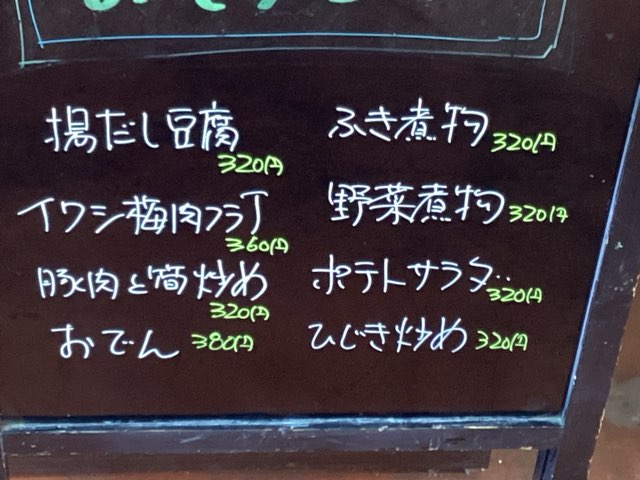 揚だし豆腐
320円
イワシ梅肉フライ
360円
豚肉と筍炒め
320円
おでん 380円
ふき煮物 320円
野菜煮物 320円
ポテトサラダ
320円
ひじき炒め 320円